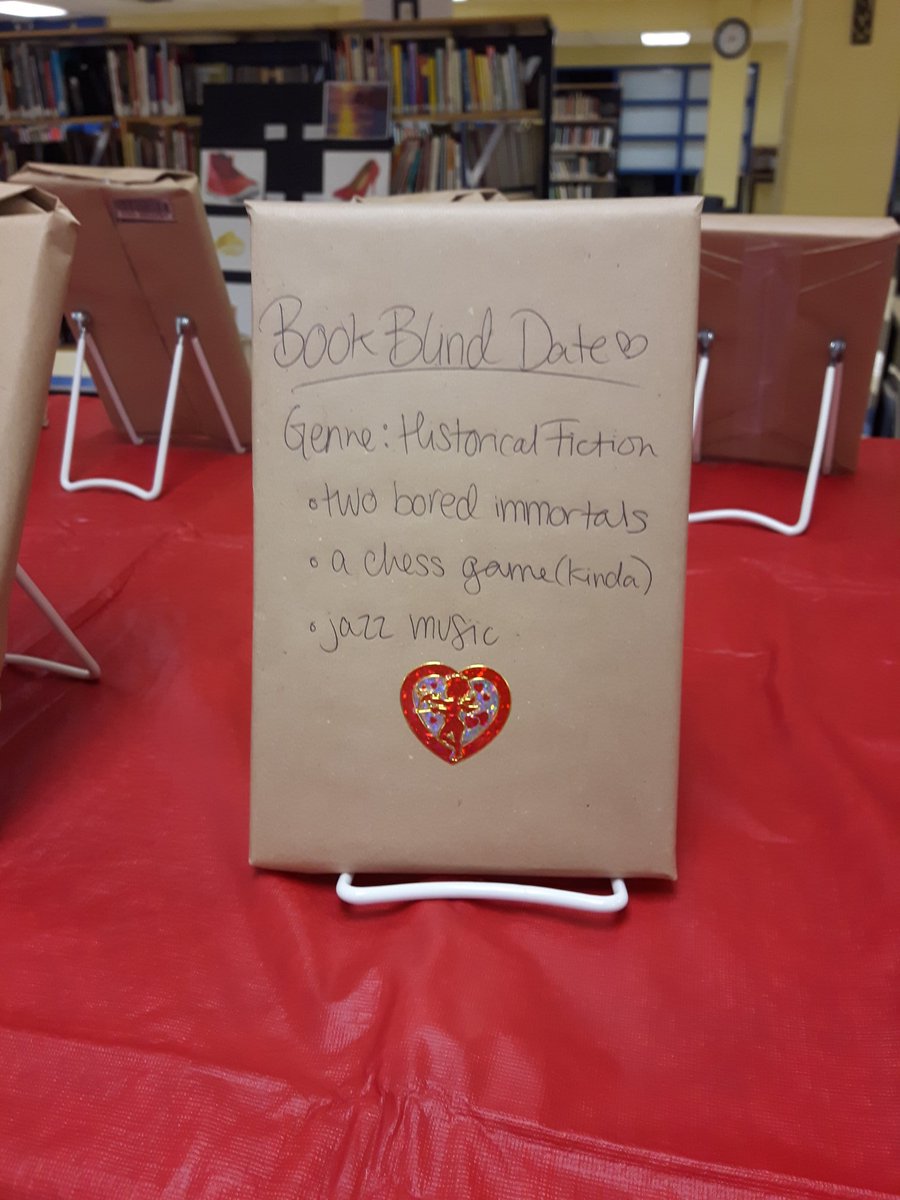 Book Blind Date ♡
Genre: Historical Fiction
• two bored immortals
• a chess game (kinda)
• jazz music